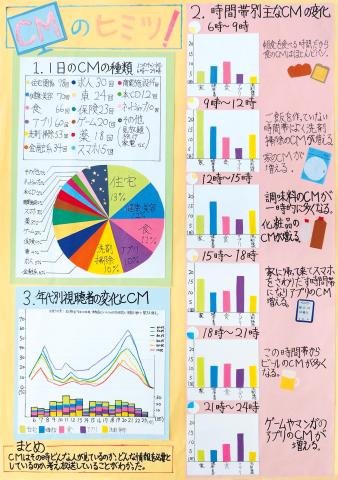 CMのヒミツ!
1.1日のCMの種類
住宅関係 78回
健康・美容 70回
食 66回
アプリ 60回
洗剤・掃除 53回
金融系 34回
求人 30回
車 24回
保険 23回
ゲーム 20回
薬 18回
スマホ 15回
本・CD 12回
その他
住宅
13%
健康・美容
食
11%
アプリ
10%
洗剤
掃除
10%
その他
スマホ
ゲーム
保険
車
求人
金融系
3.年代別視聴者の変化とCM
まとめ
CMはその時どんな人が見ているのか、どんな情報を必要と
しているのか考え放送していることがわかった。
2.時間帯別主なCMの変化
6時〜9時
朝食を食べる時間だから
食のCMはほとんどパン。
9時〜12時
ご飯を作っていない
時間帯はよく洗剤・
掃除のCMが増える。
家のCMが
増える。
12時〜15時
調味料のCMが
一時的に多くなる。
化粧品の
CMが増える。
15時〜18時
家に帰って来てスマホ
をさわりだす時間帯
になりアプリのCM
増える。
18時〜21時
この時間帯から
ビールのCMが多く
なる。
21時〜24時
ゲームやマンガの
アプリのCMが
増える。